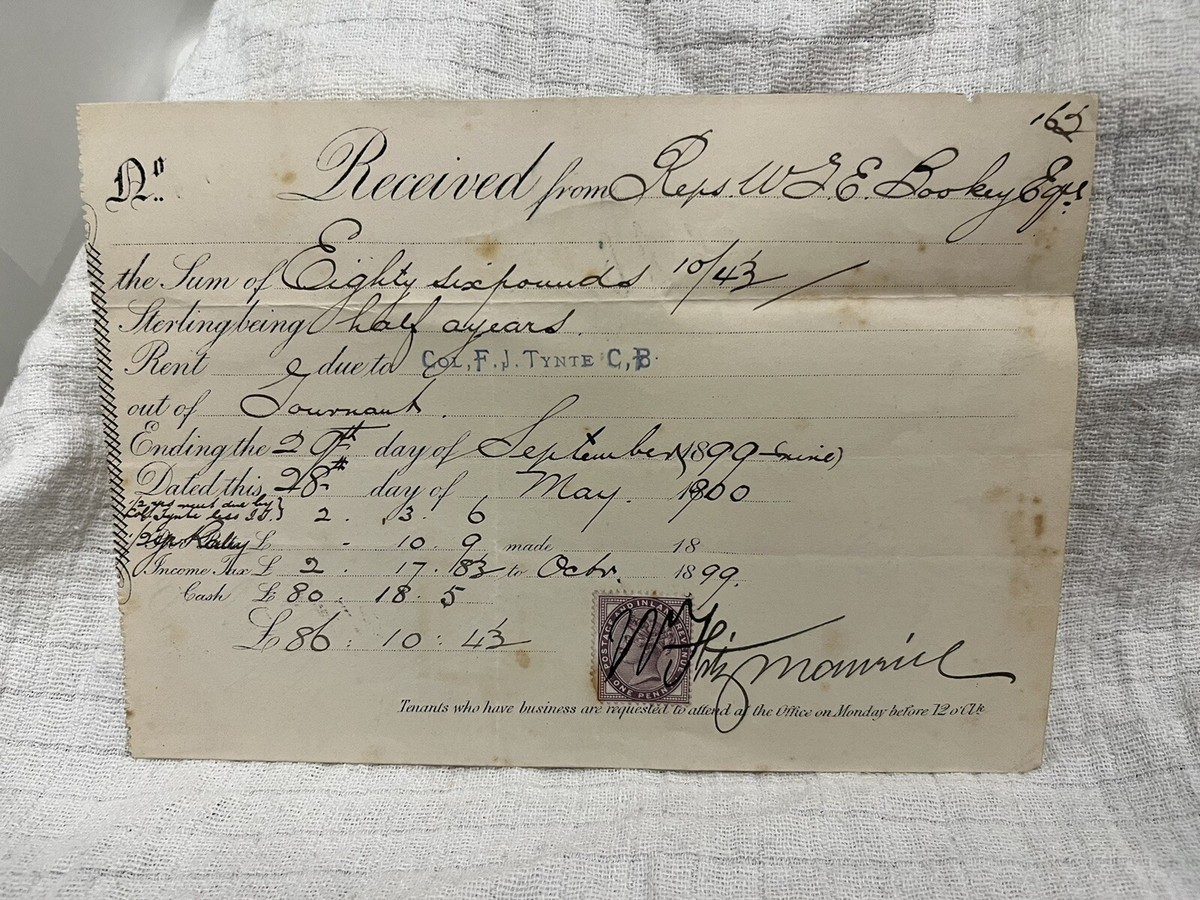 162
No. Received from Reps. W. G. E. Bookey Esqr.
the Sum of Eighty six pounds 10/4½
Sterling being half a years
Rent due to COL. F. J. TYNTE C,B.
out of Tournant.
Ending the 29th day of September (1899 - nine)
Dated this 28th day of May. 1900
½ yrs due by
Col. Tynte less I.T. } 2 . 3 . 6
½ £ - 10 . 9 made 18
Income Tax £ 2 . 17 . 8½ to Octr. 1899.
Cash £ 80 : 18 . 5
£ 86 : 10 : 4½
POSTAGE AND INLAND REVENUE
ONE PENNY
W Fitzmaurice
Tenants who have business are requested to attend at the Office on Monday before 12 o'Clk.